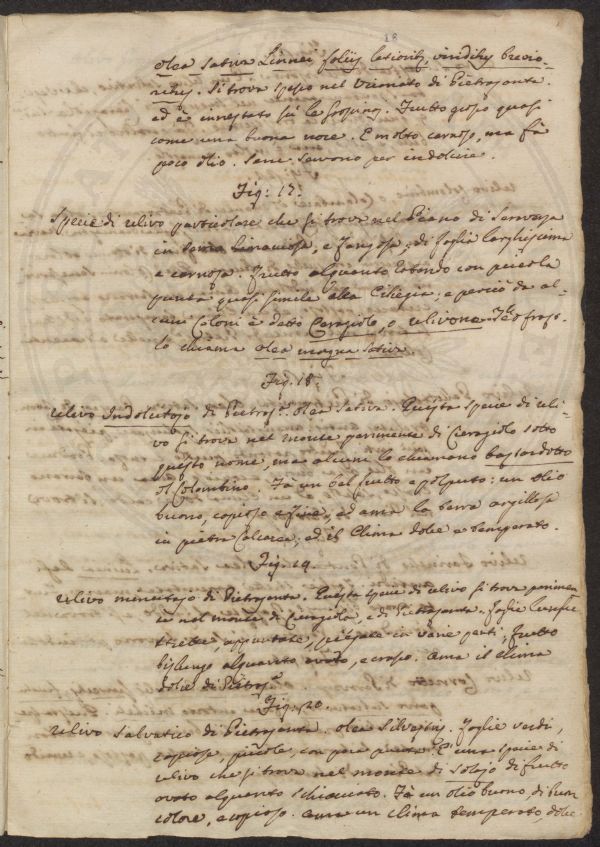 18
olea sativa Linnei foliis latiorib, viridibus brevio-
ribus. Si trova spesso nel Vicinato di Pietrasanta.
ed è innestato su le Frosung. Frutto grosso quasi
come una buona noce. È molto carnoso, ma fà
poco olio. Serve sovono per indolcire.
Fig: 17:
Specie di ulivo particolare che si trova nel Piano di Seravezza
in terra limacciosa, e fangosa; di foglia larghissima
e carnosa. Frutto alquanto rotondo con piccola
punta quasi simile alla Ciliegia; e perciò da al-
cuni Coloni è detto Ceragiolo, o ulivona. Teofras.
lo chiama olea magna sativa.
Fig. 18.
Ulivo Indolcitojo di Pietrasª. olea sativa. Questa specie di uli-
vo si trova nel monte parimente di Ceragiolo sotto
questo nome, ma alcuni lo chiamano bastardotto
o Colombino. Fà un bel frutto e polputo: un olio
buono, copioso e fine, ed ama la terra argillosa
in pietra Calcarea; ed il Clima dolce e temperato.
Fig. 19.
Ulivo minutajo di Pietrasanta. Questa specie di ulivo si trova parimen-
te nel monte di Ceragiolo, e di Pietrasanta. Foglie
strette, appuntate, in varie parti; frutto
bislungo alquanto ovato, e crasso. Ama il clima
dolce di Pietrasª
Fig. 20.
Ulivo salvatico di Pietrasanta. olea Silvestris. Foglie verdi,
copiose, piccole, con poca punta. È una specie di
ulivo che si trova nel monte di Solajo di frutto
ovato alquanto schiacciato. Fà un olio buono, di buon
colore, e copioso. ama un clima temperato, dolce